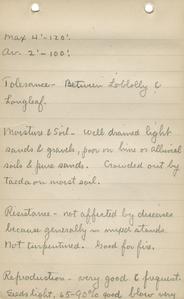 Max 4'-120'.
Av. 2'-100'.
Tolerance - Between Loblolly &
Longleaf.
Moisture & Soil - Well drained light
sands & gravels, poor on lime or alluvial
soils & pure sands. Crowded out by
taeda on moist soil.
Resistance - not affected by diseases
because generally in mixed stands.
Not turpentined. Good for fire.
Reproduction - very good & frequent.
Seeds light, 65-90% good blow very